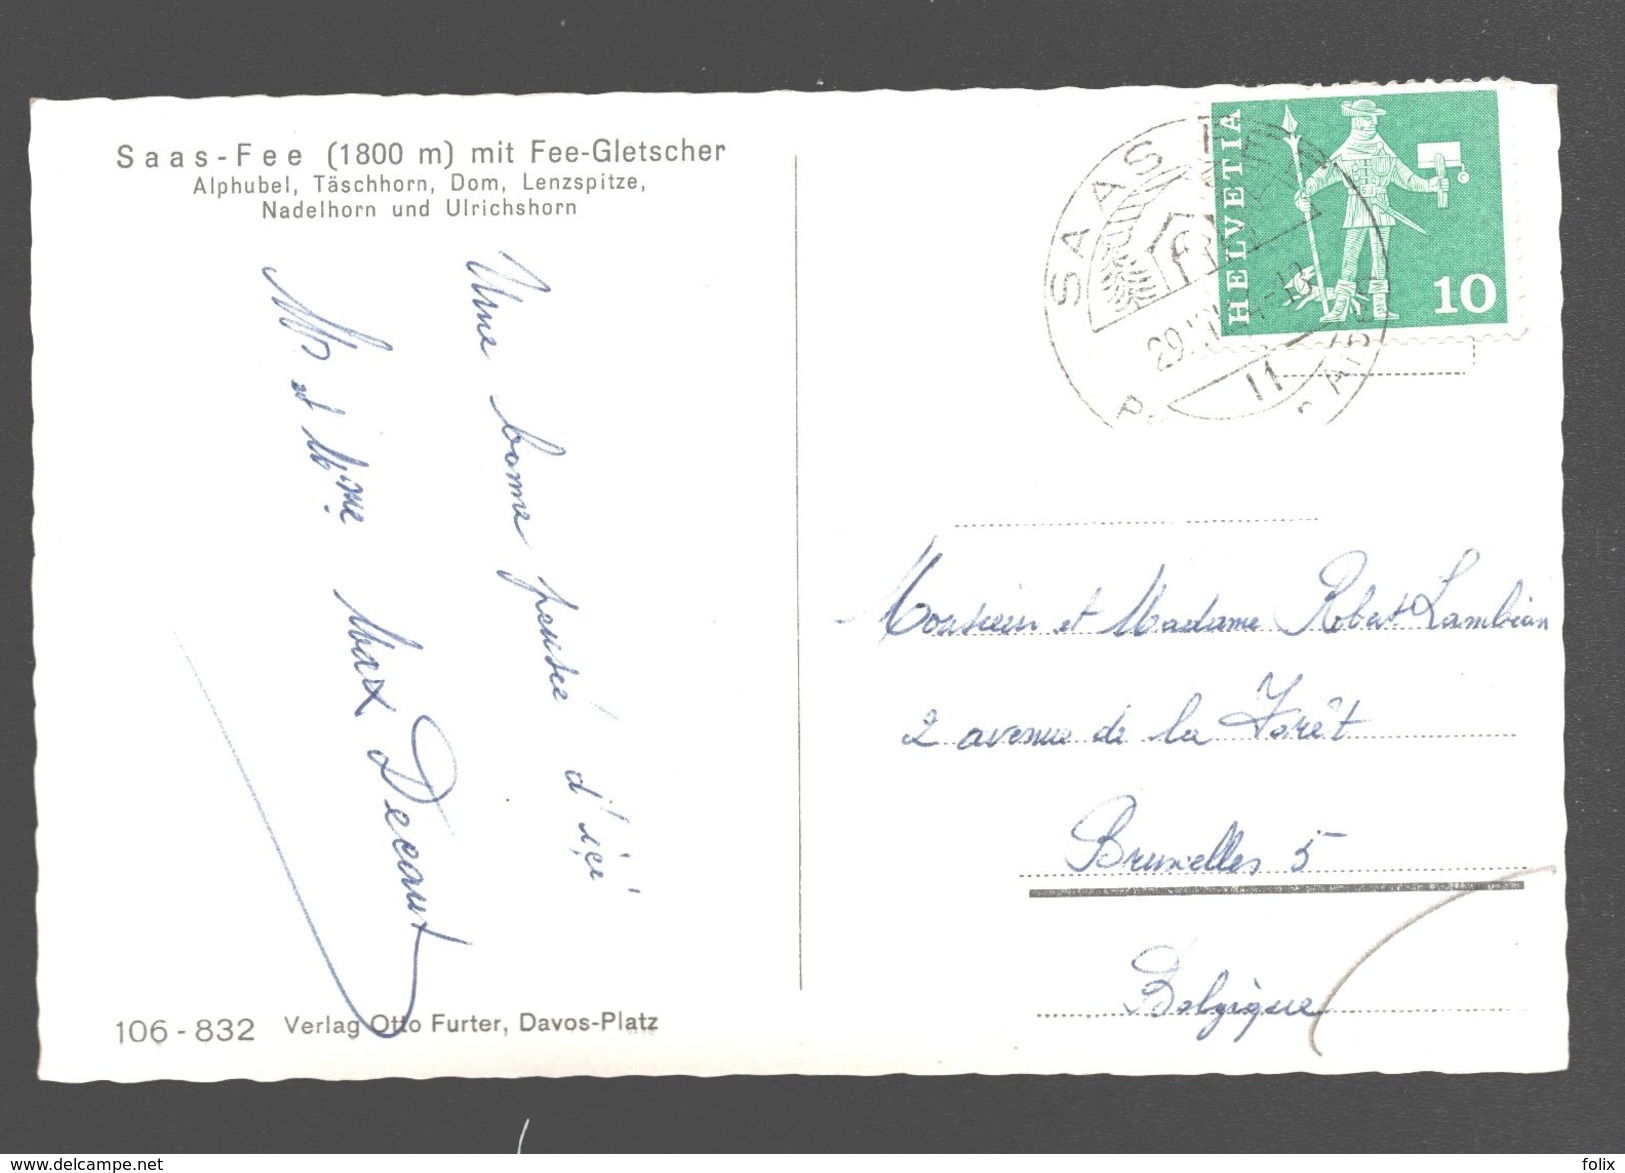 Saas-Fee (1800 m) mit Fee-Gletscher
Alphubel, Täschhorn, Dom, Lenzspitze,
Nadelhorn und Ulrichshorn
Une bonne pensée d'ici
Mr et Mme Max Decaux
106-832 Verlag Otto Furter, Davos-Platz
SAAS-FEE
11
HELVETIA
10
Monsieur et Madame Robert Lambion
2 avenue de la Forêt
Bruxelles 5
Belgique
www.delcampe.net
folix